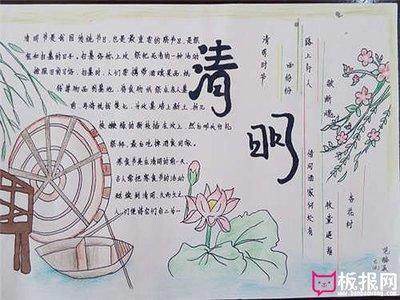 清明节是我国传统节日,也是最重要的祭节日,是祭
祖和扫墓的日子。扫墓俗称上坟,祭祀死者的一种活动
按照旧的习俗,扫墓时,人们要携带酒食果品、纸
钱等物品到墓地,将食物供祭在亲人墓
前,再将纸钱焚化,为坟墓培上新土,折几
枝嫩绿的新枝插在坟上,然后叩头行礼
祭拜,最后吃掉酒食回家。
寒食节是在清明的前一天
古人常把寒食节的活动
延续到清明,久而久之
人们便将合二为一
清明
清明时节
雨纷纷
路上行人
欲断魂
借问酒家何处有
牧童遥指
杏花村
板报网